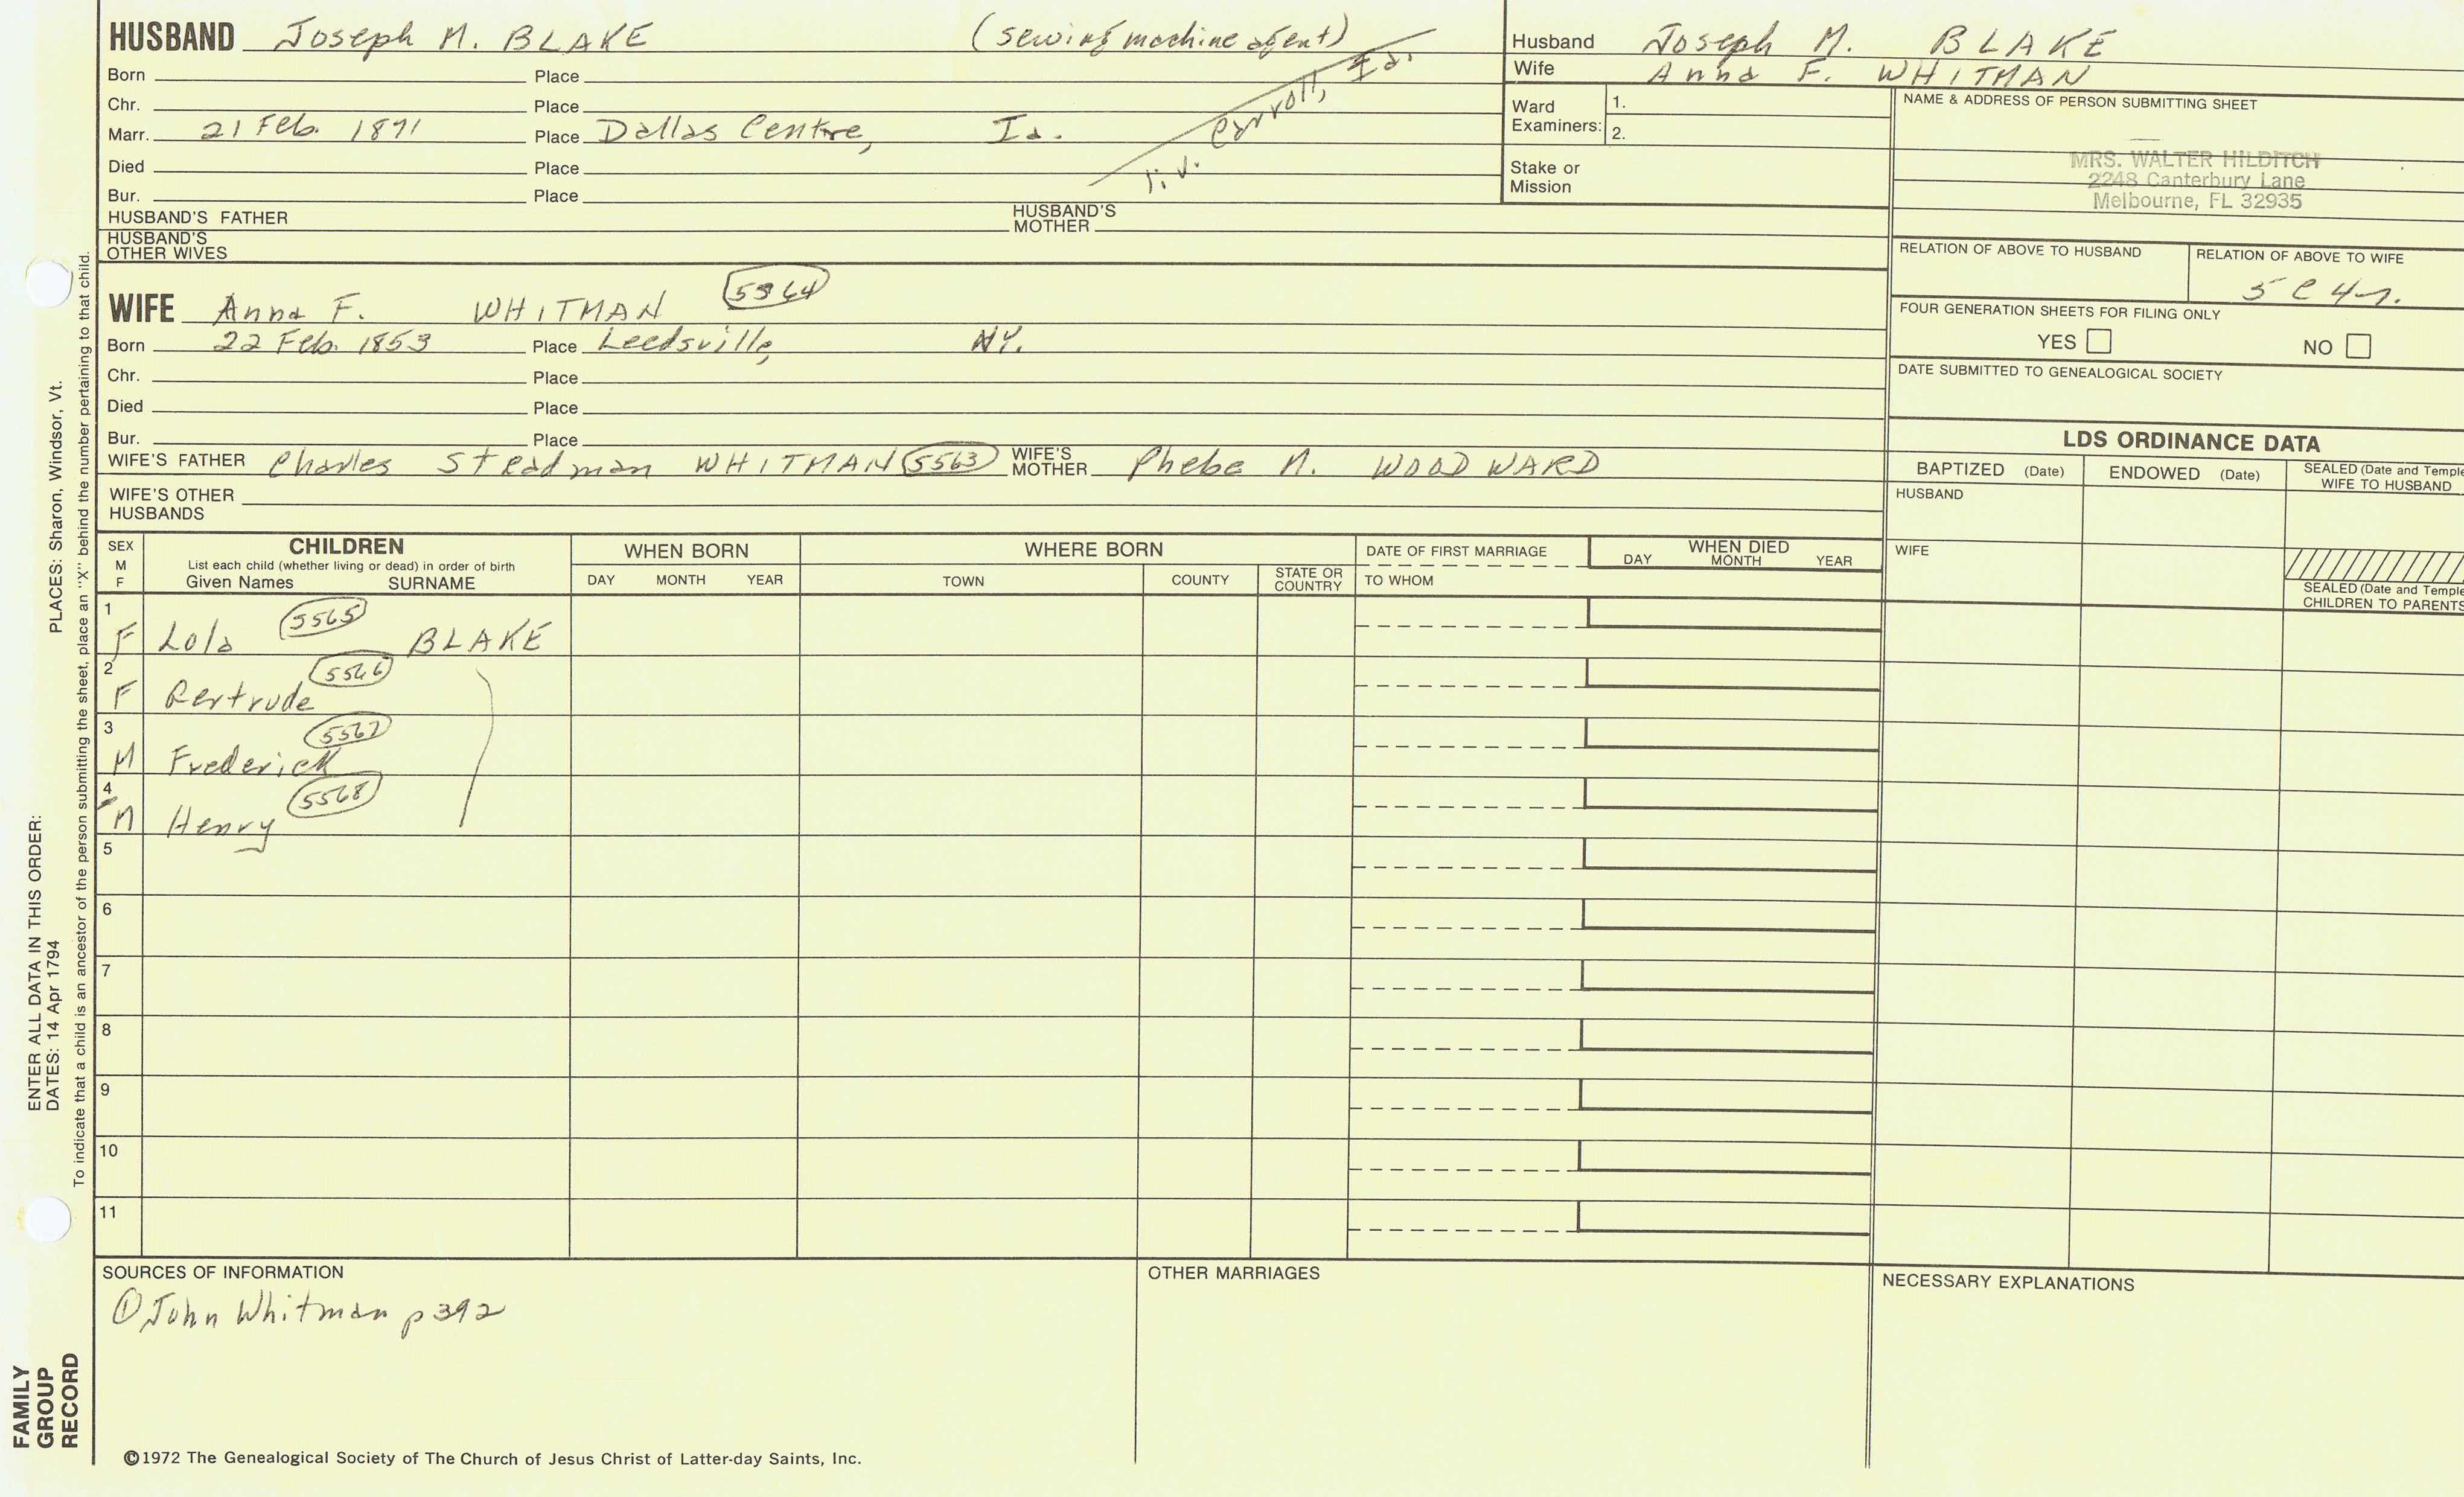 HUSBAND Joseph M. BLAKE (sewing machine agent)
Born Place
Chr. Place
Marr. 21 Feb. 1871 Place Dallas Centre, Ia.
liv. Carroll, Ia.
Died Place
Bur. Place
HUSBAND'S FATHER HUSBAND'S MOTHER
HUSBAND'S OTHER WIVES
Husband Joseph M. BLAKE
Wife Anna F. WHITMAN
Ward Examiners: 1.
2.
Stake or Mission
NAME & ADDRESS OF PERSON SUBMITTING SHEET
MRS. WALTER HILDITCH
2248 Canterbury Lane
Melbourne, FL 32935
RELATION OF ABOVE TO HUSBAND RELATION OF ABOVE TO WIFE
5C4r.
FOUR GENERATION SHEETS FOR FILING ONLY
YES NO
DATE SUBMITTED TO GENEALOGICAL SOCIETY
WIFE Anna F. WHITMAN 5564
Born 22 Feb. 1853 Place Leedsville, NY.
Chr. Place
Died Place
Bur. Place
WIFE'S FATHER Charles Steadman WHITMAN 5563 WIFE'S MOTHER Phebe M. WOODWARD
WIFE'S OTHER HUSBANDS
LDS ORDINANCE DATA
BAPTIZED (Date) ENDOWED (Date) SEALED (Date and Temple
WIFE TO HUSBAND
HUSBAND
WIFE
SEALED (Date and Temple
CHILDREN TO PARENTS
SEX M F CHILDREN WHEN BORN WHERE BORN DATE OF FIRST MARRIAGE WHEN DIED
List each child (whether living or dead) in order of birth
Given Names SURNAME DAY MONTH YEAR TOWN COUNTY STATE OR COUNTRY TO WHOM DAY MONTH YEAR
1 F Lola 5565 BLAKE
2 F Gertrude 5566
3 M Frederick 5567
4 M Henry 5568
5
6
7
8
9
10
11
SOURCES OF INFORMATION
① John Whitman p 392
OTHER MARRIAGES
NECESSARY EXPLANATIONS
©1972 The Genealogical Society of The Church of Jesus Christ of Latter-day Saints, Inc.
FAMILY
GROUP
RECORD
ENTER ALL DATA IN THIS ORDER:
DATES: 14 Apr 1794 PLACES: Sharon, Windsor, Vt.
To indicate that a child is an ancestor of the person submitting the sheet, place an "X" behind the number pertaining to that child.